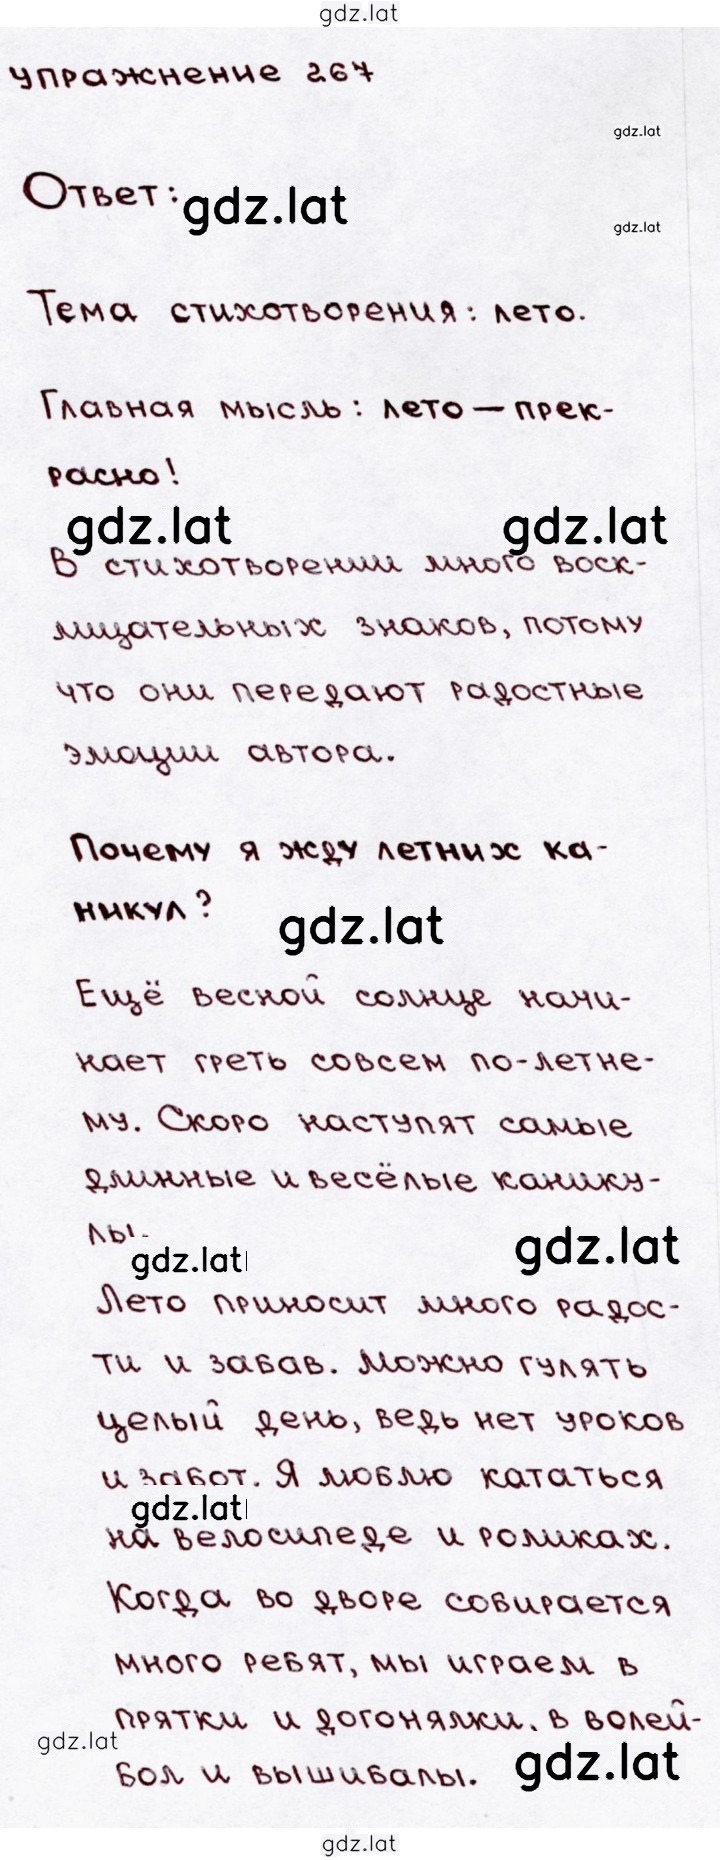 gdz.lat
упражнение 267
gdz.lat
Ответ:
gdz.lat
gdz.lat
Тема стихотворения: лето.
Главная мысль: лето — прек-
расно!
gdz.lat
gdz.lat
В стихотворении много воск-
лицательных знаков, потому
что они передают радостные
эмоции автора.
Почему я жду летних ка-
никул?
gdz.lat
Ещё весной солнце начи-
нает греть совсем по-летне-
му. Скоро наступят самые
длинные и весёлые канику-
лы.
gdz.lat
gdz.lat
Лето приносит много радос-
ти и забав. Можно гулять
целый день, ведь нет уроков
и забот. Я люблю кататься
gdz.lat
на велосипеде и роликах.
Когда во дворе собирается
много ребят, мы играем в
прятки и догонялки, в волей-
gdz.lat
бол и вышибалы.
gdz.lat
gdz.lat